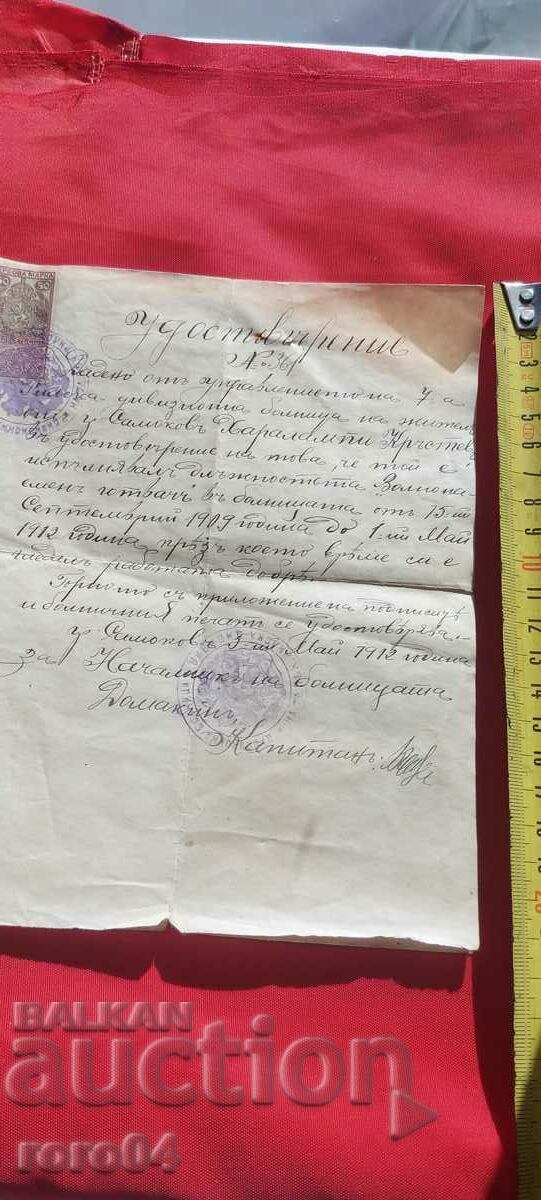 РБОВА МАРКА
50
Удостовѣрение
№ 36
дено отъ управлението на 7-а
Рилска дивизионна болница на жителя
отъ г. Самоковъ Харалампи Кръстевъ
въ удостовѣрение на това, че той е
испълнявалъ длъжностьта Волнона-
еменъ готвачъ въ болницата отъ 15-ий
Септемврий 1909 година до 1-ий Май
1912 година презъ което врѣме си е
гледалъ работата добрѣ.
Горното съ приложение на подписитѣ
и болничния печатъ се удостовѣрява.
гр. Самоковъ 3-ий Май 1912 година
за Началникъ на болницата
Домакинъ,
Капитанъ:
BALKAN
auction
roro04